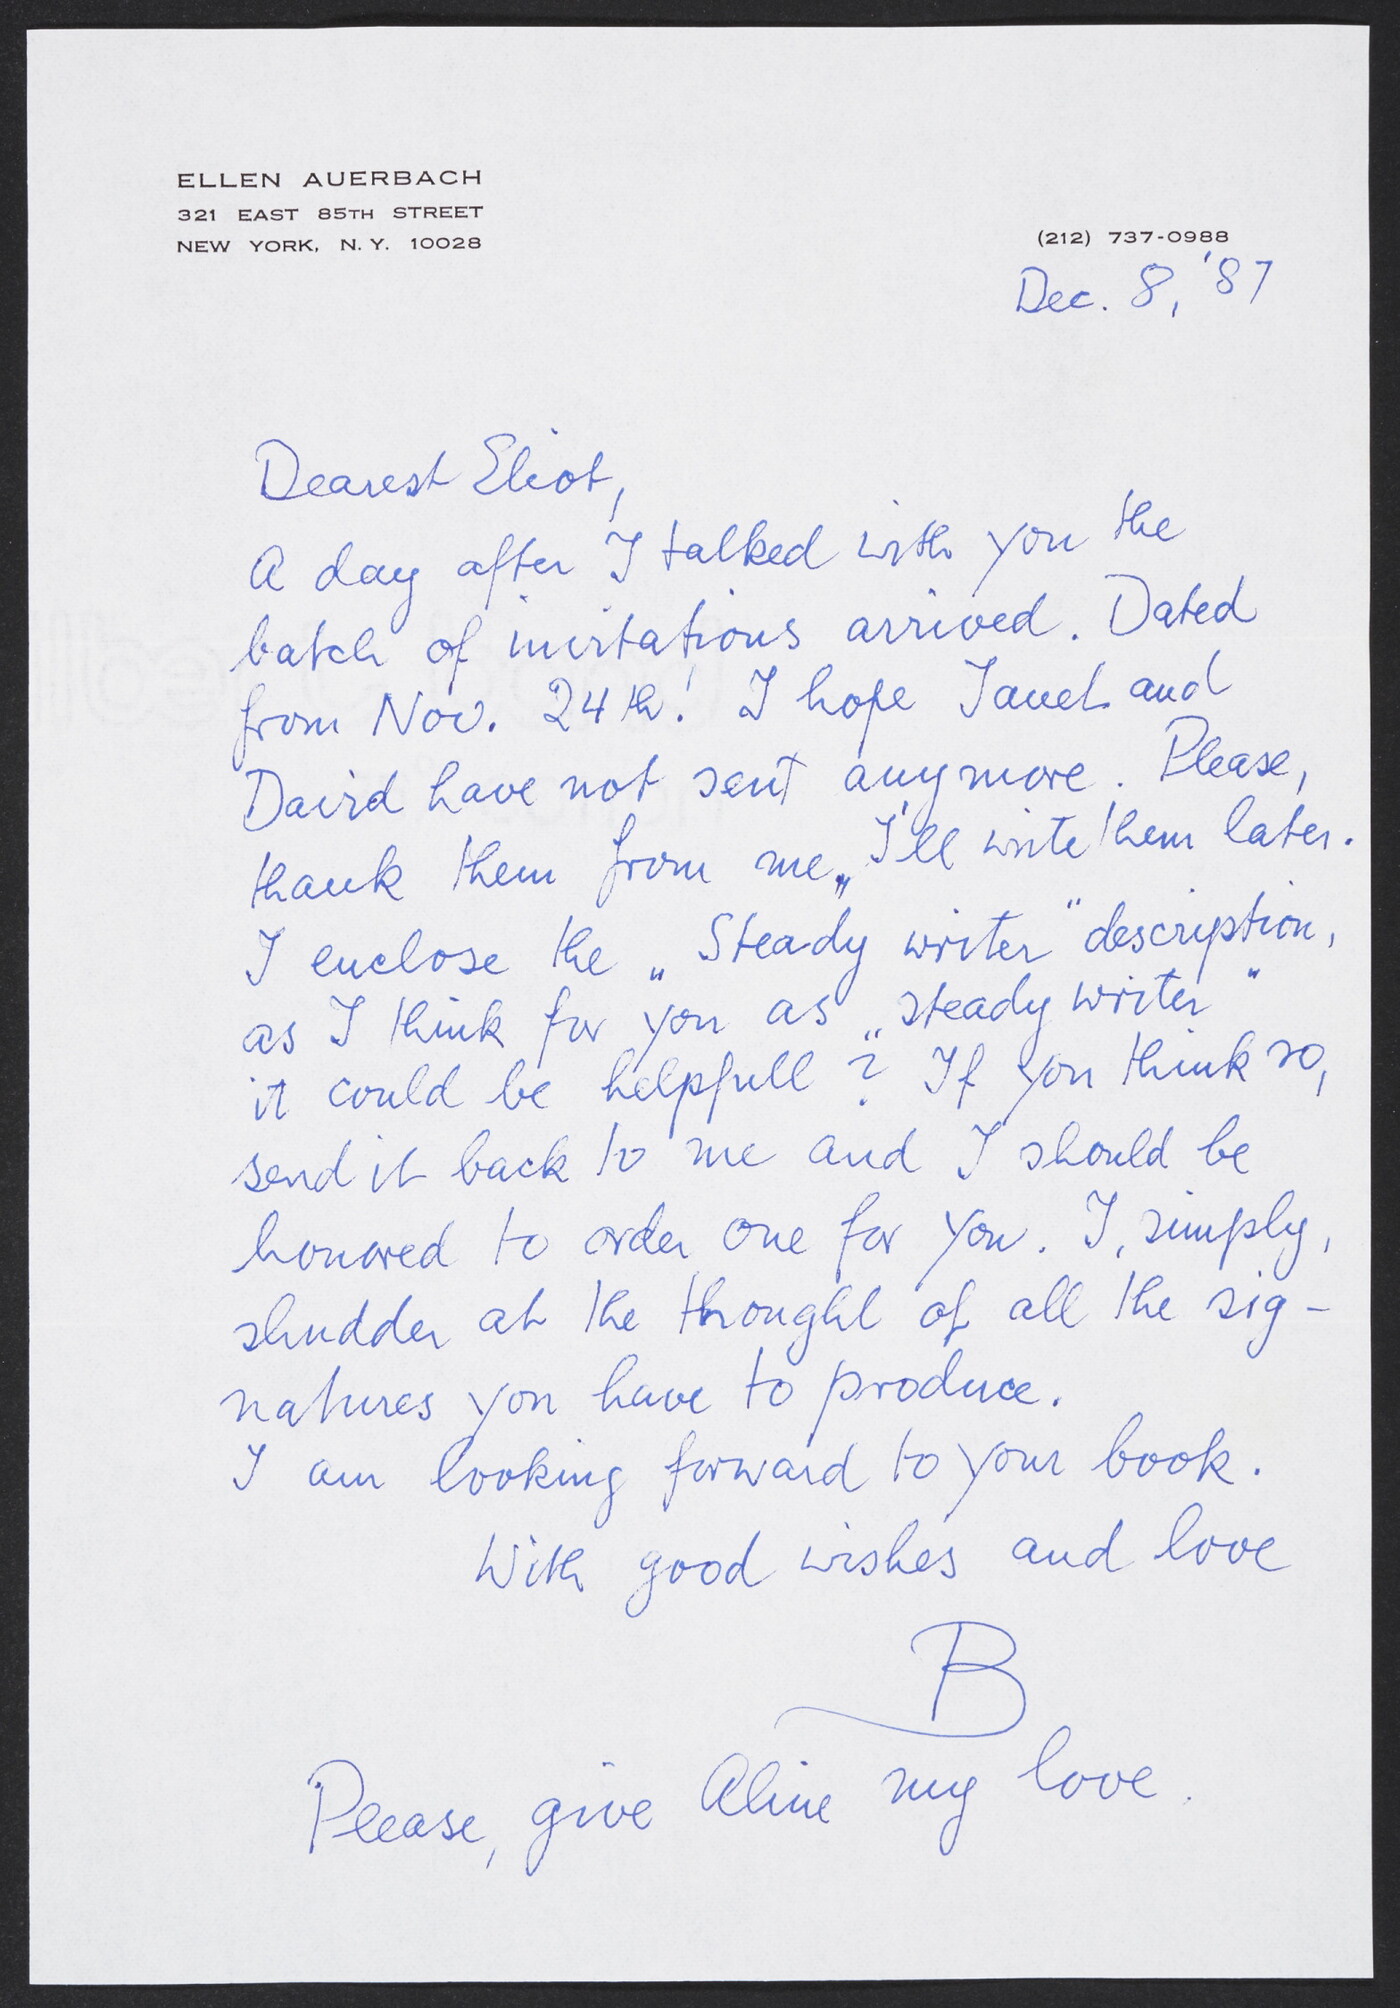 ELLEN AUERBACH
321 EAST 85TH STREET
NEW YORK, N. Y. 10028
(212) 737-0988
Dec. 8, '87
Dearest Eliot,
A day after I talked with you the
batch of invitations arrived. Dated
from Nov. 24th! I hope Janet and
David have not sent anymore. Please,
thank them from me, I'll write them later.
I enclose the „Steady writer" description,
as I think for you as „steady writer"
it could be helpfull? If you think so,
send it back to me and I should be
honored to order one for you. I, simply,
shudder at the thought of all the sig-
natures you have to produce.
I am looking forward to your book.
With good wishes and love
B
Please, give Aline my love.